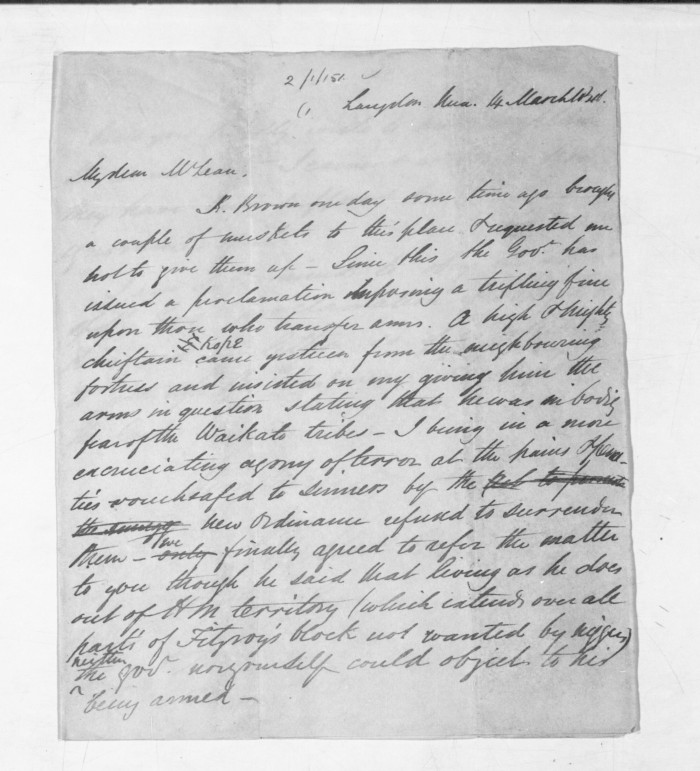 2/1/151.
Langdon Hua. 14 March
My dear McLean,
R. Brown one day some time ago brought
a couple of muskets to this place & requested me
not to give them up – Since this the Govr. has
issued a proclamation imposing a trifling fine
upon those who transfer arms. A high & mighty
chieftain came yestreen from the neighbouring
fortress and insisted on my giving him the
arms in question stating that he was in bodily
fear of the Waikato tribes – I being in a more
excruciating agony of terror at the pains &
ties vouchsafed to sinners by the
new Ordinance refused to surrender
them – only we finally agreed to refer the matter
to you though he said that living as he does
out of HM territory (which extends over all
parts of Fitzroy's block not wanted by niggers)
neither
the gov. nor yourself could object to his
being armed –